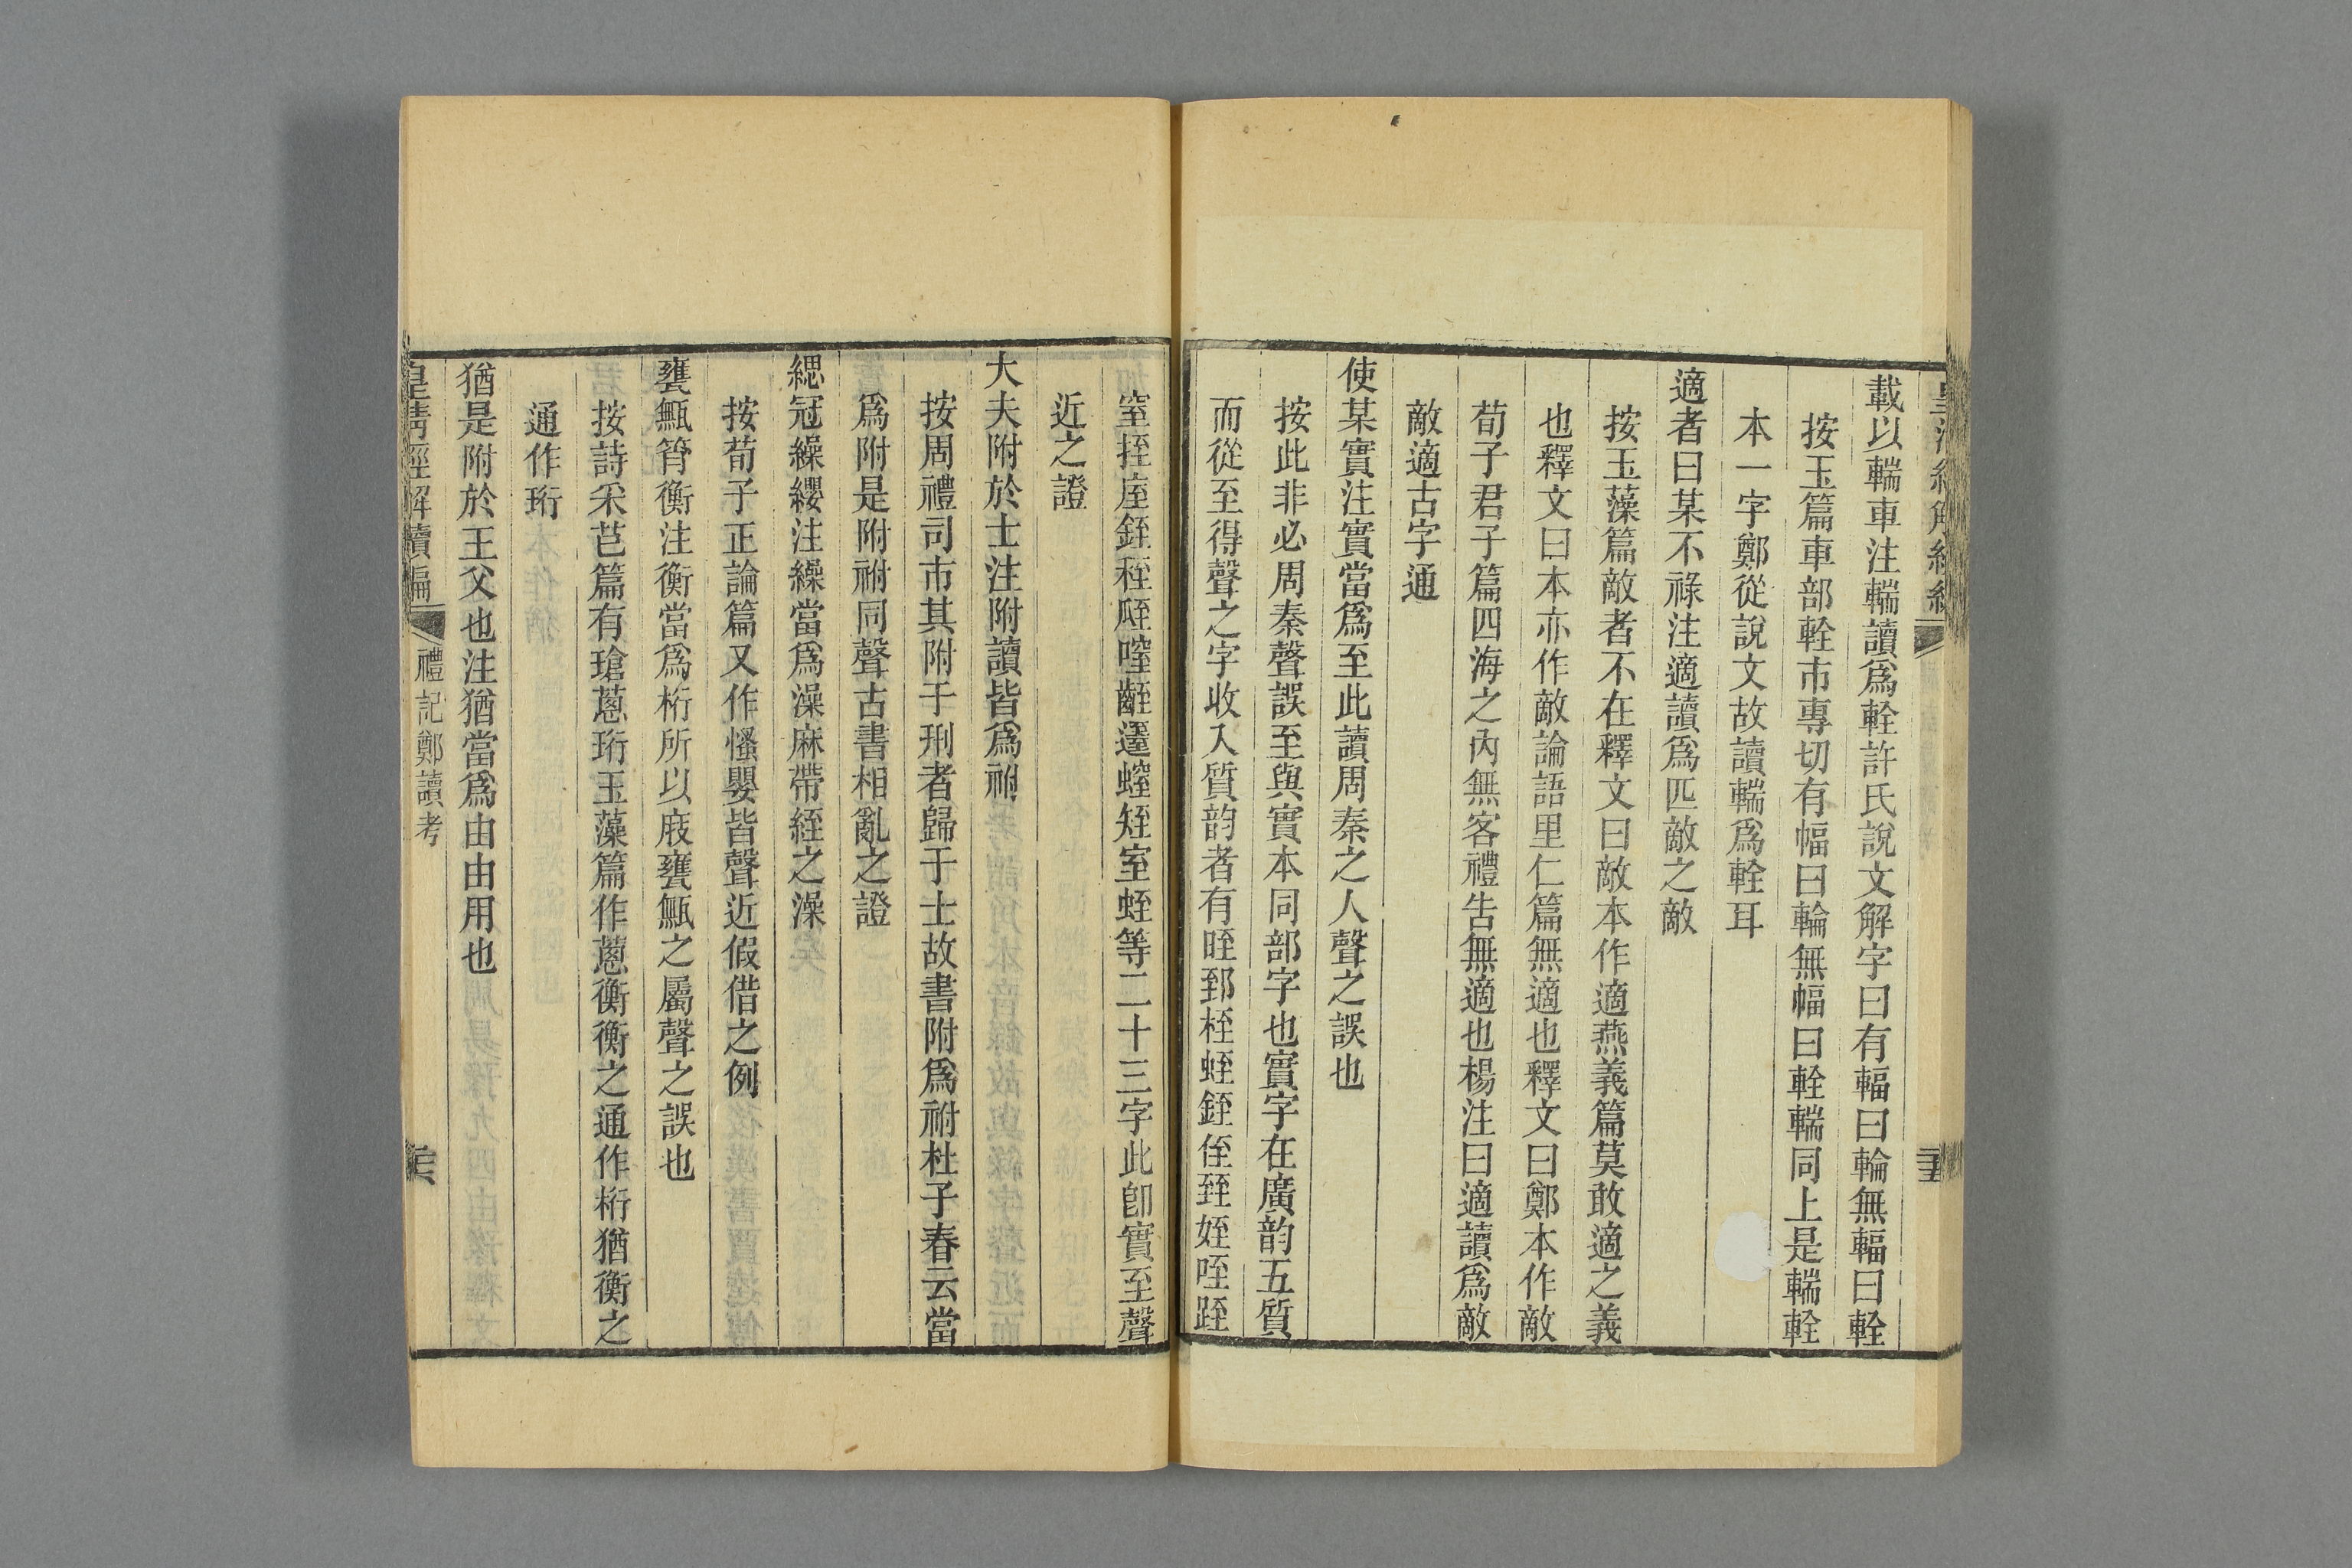 載以輲車注輲讀爲輇許氏說文解字曰有輻曰輪無輻曰輇
按玉篇車部輇市專切有幅曰輪無幅曰輇輲同上是輲輇
本一字鄭從說文故讀輲爲輇耳
適者曰某不祿注適讀爲匹敵之敵
按玉藻篇敵者不在釋文曰敵本作適燕義篇莫敢適之義
也釋文曰本亦作敵論語里仁篇無適也釋文曰鄭本作敵
荀子君子篇四海之內無客禮告無適也楊注曰適讀爲敵
敵適古字通
使某實注實當爲至此讀周秦之人聲之誤也
按此非必周秦聲誤至與實本同部字也實字在廣韵五質
而從至得聲之字收入質韵者有晊郅桎蛭銍侄臸姪咥跮
窒挃庢銍秷胵 齛 螲矬室蛭等二十三字此卽實至聲
近之證
大夫附於士注附讀皆爲祔
按周禮司市其附于刑者歸于士故書附爲祔杜子春云當
爲附是附祔同聲古書相亂之證
緦冠繰纓注繰當爲澡麻帶絰之澡
按荀子正論篇又作慅嬰皆聲近假借之例
甕甒筲衡注衡當爲桁所以庪甕甒之屬聲之誤也
按詩采芑篇有瑲蔥珩玉藻篇作蔥衡衡之通作桁猶衡之
通作珩
猶是附於王父也注猶當爲由由用也
皇淸經解續編
禮記鄭讀考